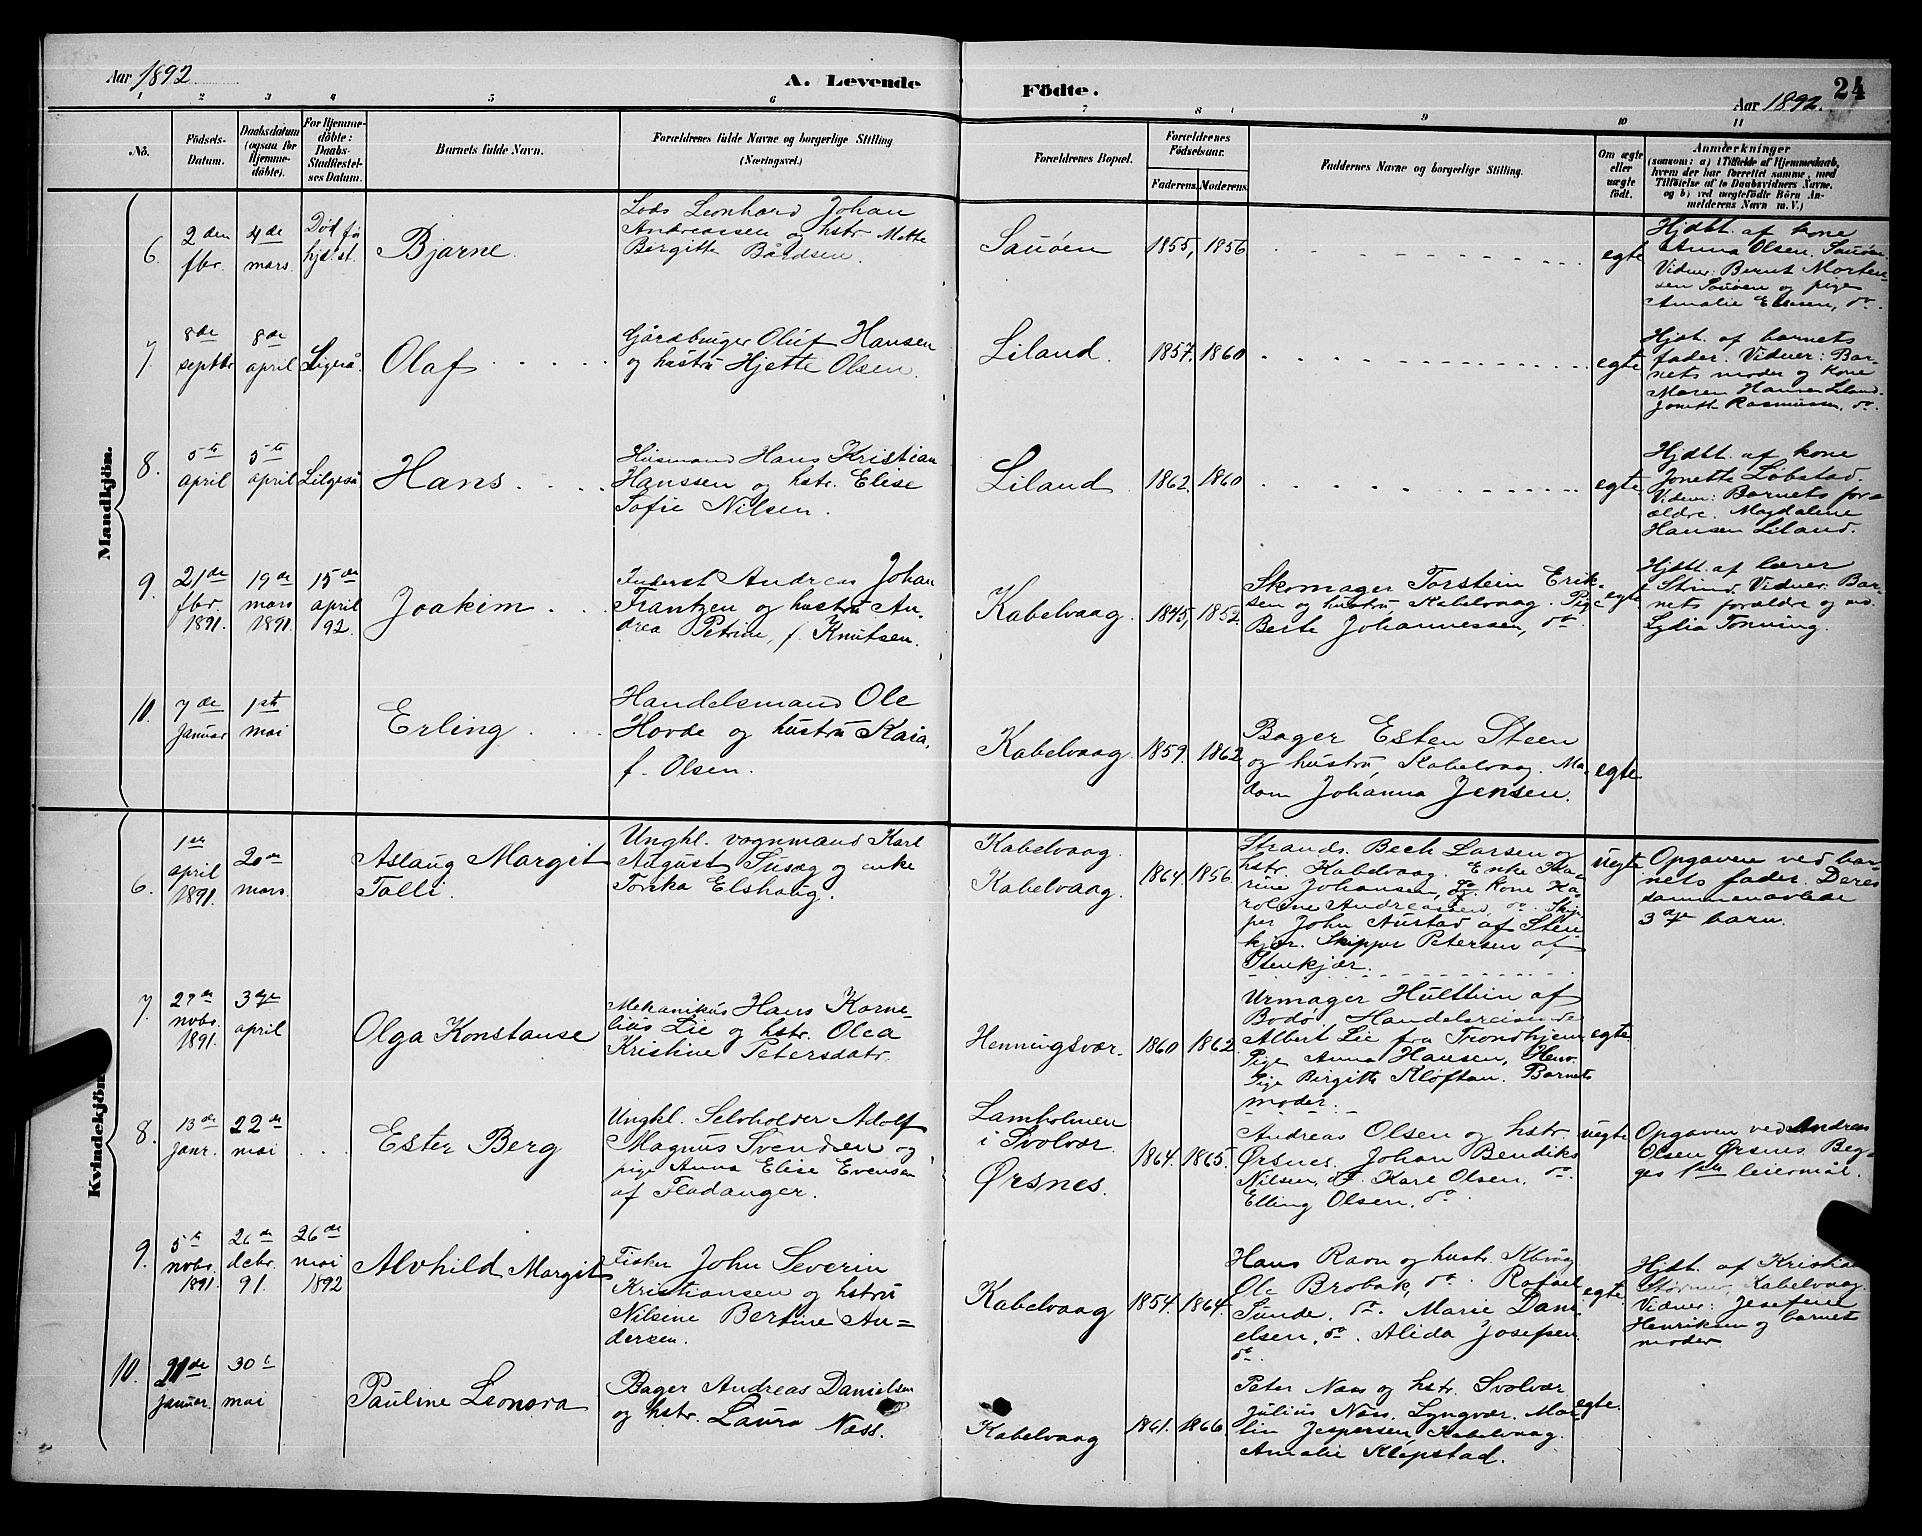 Aar 1892
A. Levende
Födte.
Aar 1892.
24
1 2 3 4 5 6 7 8 9 10 11
No.
Födsels-
Datum.
Daabsdatum
(ogsaa for
Hjemme-
döbte).
For Hjemme-
döbte:
Daabs-
Stadfæstel-
ses Datum.
Barnets fulde Navn.
Forældrenes fulde Navne og borgerlige Stilling
(Næringsvei.)
Forældrenes Bopæl.
Forældrenes
Födselsaar.
Faderens. Moderens.
Faddernes Navne og borgerlige Stilling.
Om ægte
eller
uægte
født.
Anmærkninger
(saasom: a) i Tilfælde af Hjemmedaab,
hvem der har forrettet samme, med
Tilföielse af to Daabsvidners Navne,
og b) ved uægtefödte Börn An-
melderens Navn m. V.)
Mandkjön.
6.
2den
fbr.
4de
mars.
Död fö
hjd st.
Bjarne.
Lods Leonhard Johan
Andreassen og hstr. Mette
Birgitte Bårdsen.
Sauöen
1855, 1856
egte
Hjdbt. af kone
Anna Olsen, Sauöen.
Vidner: Bernt Morten-
sen Sauöen og pige
Amalie Ellesen, do.
7.
8de
septbr
8de
april
Ligeså.
Olaf
Gårdbruger Oluf Hansen
og hustru Hjette Olsen.
Liland.
1857. 1860
egte
Hjdt. af barnets
fader. Vidner: Bar-
nets moder og kone
Maren Hansen Liland.
Jonette Rasmussen, do.
8.
5te
april
5te
april
Hans
Husmand Hans Kristian
Hanssen og hstr. Elise
Sofie Nilsen.
Liland
1862. 1860
egte
Hjdbt. af kone
Jonette Löbstad.
Vidner: Barnets for-
ældre. Magdalene
Hansen Liland.
9.
21de
fbr.
1891.
19de
mars
1891.
15de
april
92.
Joakim
Inderst Andreas Johan
Frantzen og hustru An-
drea Petrine, f. Knutsen.
Kabelvaag
1845, 1852.
Skomager Torstein Erik-
sen og hustru, Kabelvaag. Pige
Berte Johannessen, do.
egte
Hjdbt. af lærer
Strind. Vidner: Bar-
nets forældre og
Lydia Tonning.
10.
7de
januar
1ste
mai
Erling
Handelsmand Ole
Hovde og hustru Kaia,
f. Olsen.
Kabelvaag.
1859. 1862
Bager Esten Steen
og hustru, Kabelvaag. Ma-
dam Johanna Jensen.
egte
Kvindekjön.
6.
1ste
april
1891.
20de
mars.
Aslaug Margit
Talli
Unghl. vognmand Karl
August Susæg og enke
Torika Elshaug.
Kabelvaag.
Kabelvaag.
1864. 1856.
Strands. Bech Larsen og
hstr. Kabelvaag. Enke
rine Johansen, do. kone Ka-
roline Andreassen, do. Skip-
per John Austad af Sten-
kjær. Skipper Petersen af
Stenkjær.
uegte
Opgaven ved bar-
nets fader. Deres
sammenavlede
3die barn.
7.
27de
nobr.
1891.
3die
april
Olga Konstanse
Mekanikus Hans Korne-
lius Lie og hstr. Olea
Kristine Petersdatr.
Henningsvær.
1860 1862.
Urmager Hulttin af
Bodö. Handelsreisende
Albert Lie fra Trondhjem
Pige Anna Hansen, Henv.
Pige Birgitte Klöftan. Barnets
moder.
egte
8.
13de
janr.
22de
mai
Ester Berg
Unghl. Selvholder Adolf
Magnus Svendsen og
pige Anna Elise Evensen
af Fladanger.
Lamholmen
i Svolvær
Örsnes.
1864. 1865.
Andreas Olsen og hstr.
Örsnes. Johan Bendiks
Nilsen, do. Karl Olsen, do.
Elling Olsen, do
uegte
Opgaven ved Andreas
Olsen Örsnes. Beg-
ges 1ste leiermål.
9.
5te
nobr.
1891.
26de
debr.
91.
26de
mai
1892
Alvhild Margit
Fisker John Severin
Kristiansen og hstru
Nilsine Bertine An-
dersen.
Kabelvaag
1854. 1864.
Hans Ravn og hustr. Kbvåg
Ole Brobak, do. Rafael
Sunde, do. Marie Dani-
elsen, do. Alida Josefsen
do.
egte.
Hjdt. af Kristian
Störmer, Kabelvaag.
Vidner: Josefine
Henriksen og barnets
moder
10.
21de
januar.
30te
mai
Pauline Leonora
Bager Andreas Danielsen
og hstr. Laura Næss.
Kabelvaag
1861. 1866.
Peter Næss og hstr. Svolvær
Julius Næss, Lyngvær. Mar-
tin Jespersen, Kabelvaag.
Amalie Klepstad.
egte.